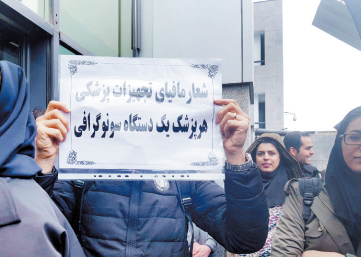 شعار مافیای تجهیزات پزشکی
هر پزشک یک دستگاه سونوگرافی